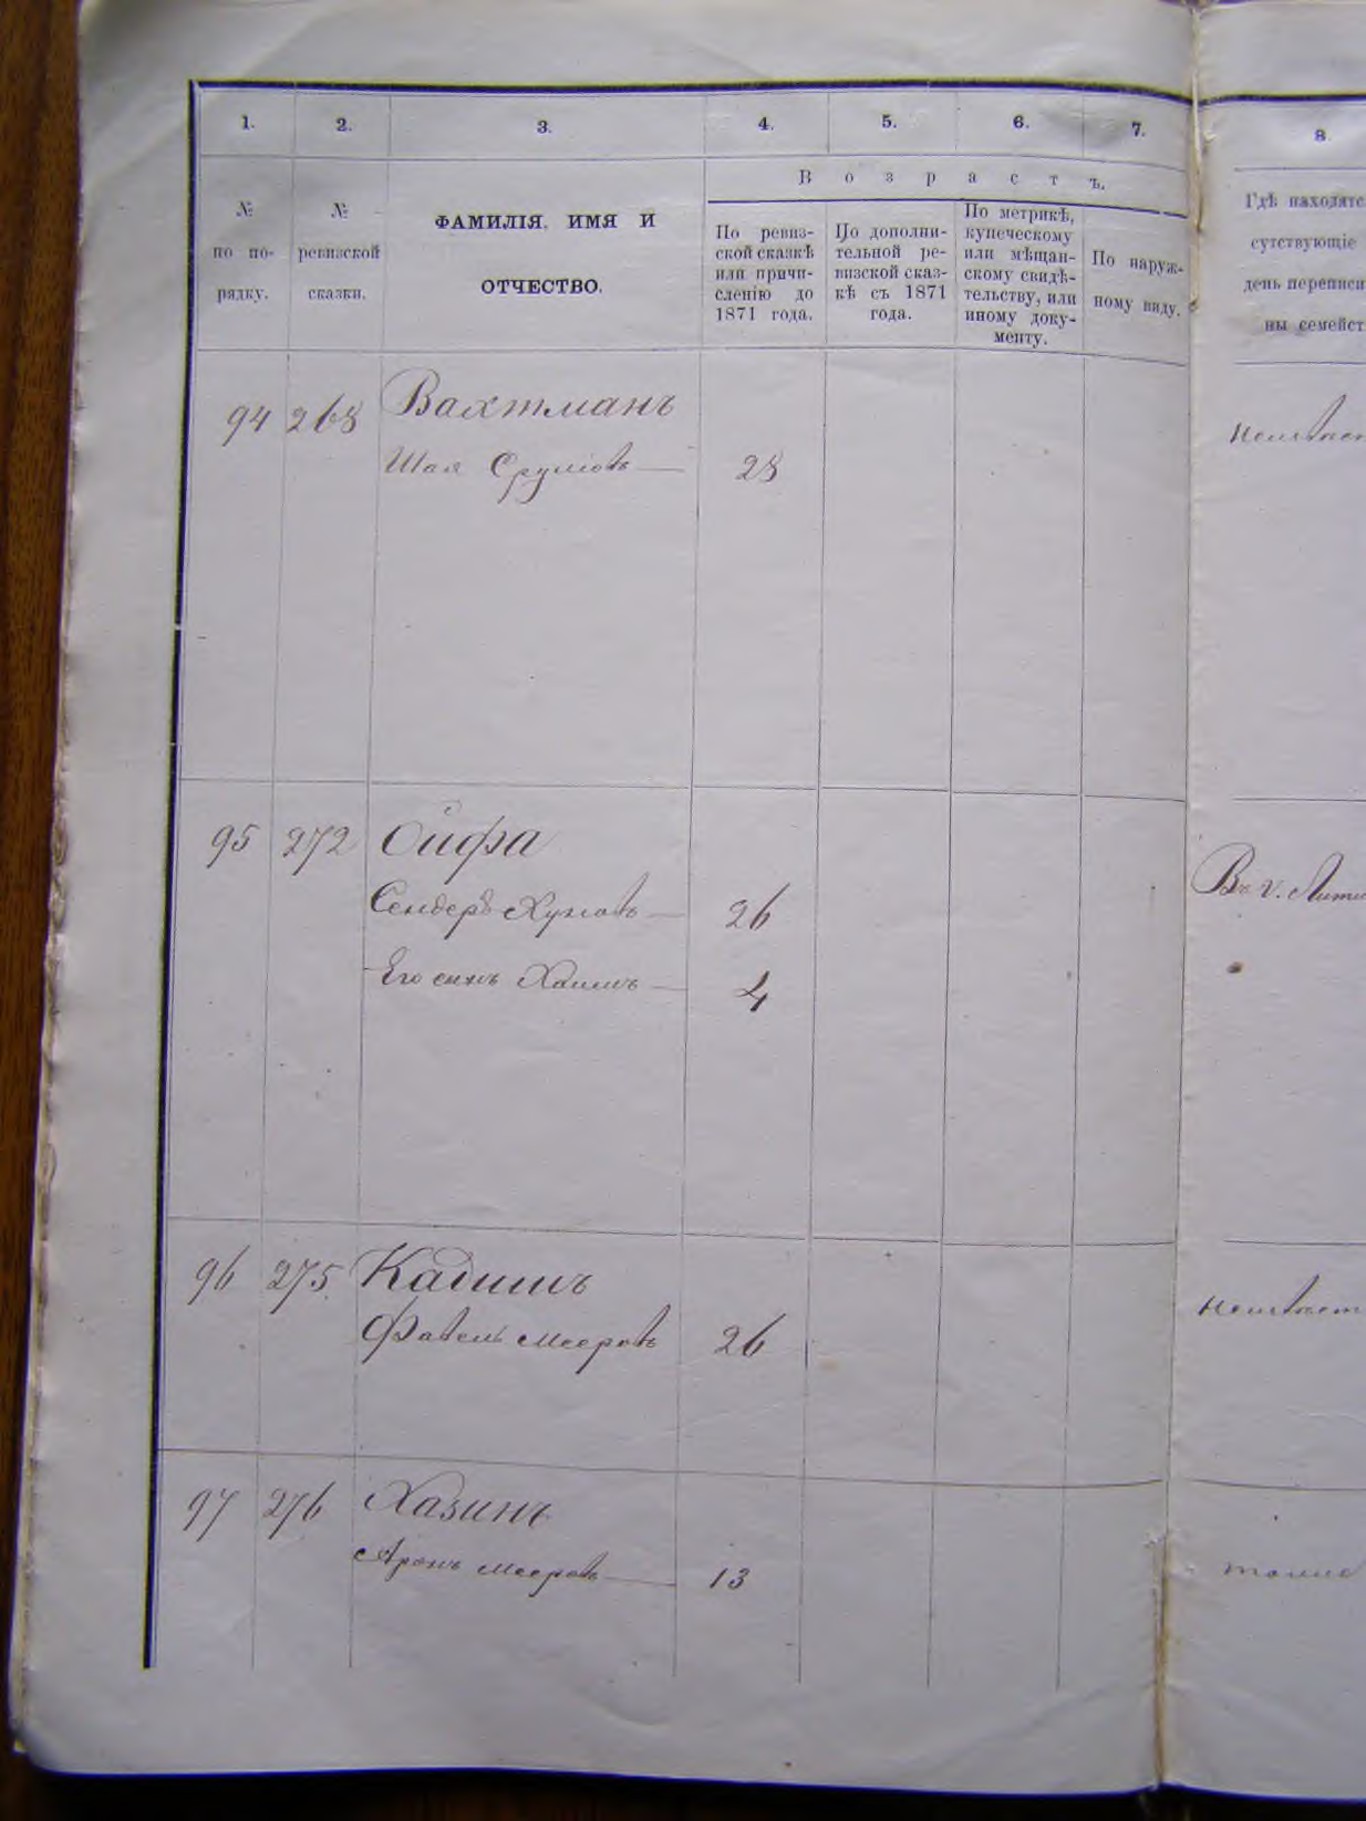 1. 2. 3. 4. 5. 6. 7. 8.
В о з р а с т ъ.
№ по по-рядку.
№ ревизской сказки.
ФАМИЛІЯ, ИМЯ И
ОТЧЕСТВО.
По ревиз-
ской сказкѣ
или причи-
сленію до
1871 года.
По дополни-
тельной ре-
визской сказ-
кѣ съ 1871
года.
По метрикѣ,
купеческому
или мѣщан-
скому свидѣ-
тельству, или
иному доку-
менту.
По наруж-
ному виду.
Гдѣ находятс
сутствующіе
день переписи
ны семейст
94 268 Вахтманъ
Шая Срулiовъ 28
95 272 Ойфа
Сендеръ Хуновъ 26
Его сынъ Хаимъ 4
Въ г.
96 275 Кадишъ
Мееровъ 26
97 276 Хазинъ
Аронъ Мееровъ 13